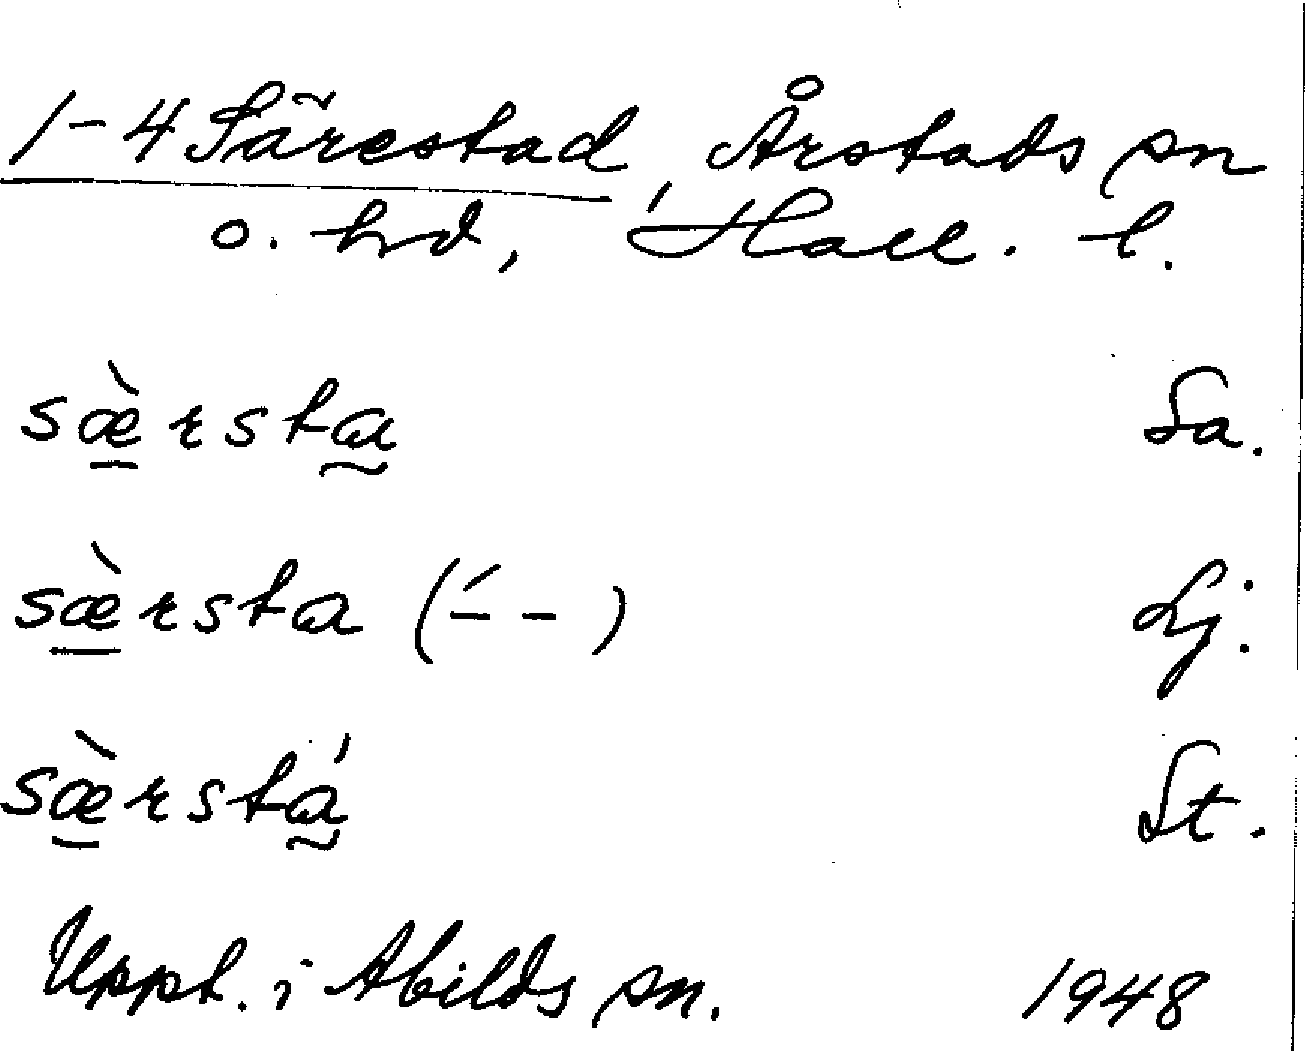 1-4 Särestad, Årstads sn
o. hd, Hall. l.
sæ̀rsta Sa.
sæ̀rsta (-́ -) Lj.
sæ̀rstá St.
Uppt. i Abilds sn. 1948